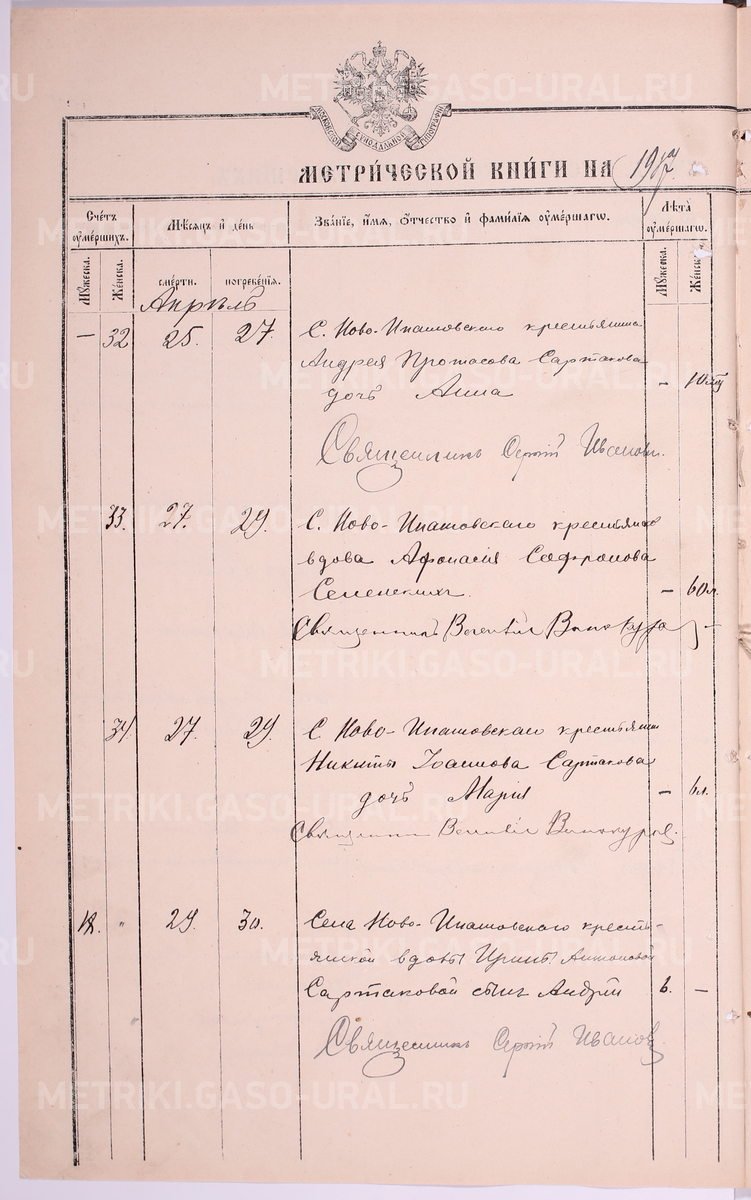 МОСКОВСКОЙ СѴНОДАЛЬНОЙ ТИПОГРАФІИ
МЕТРИ́ЧЕСКОЙ КНИ́ГИ НА 1917
Сче́тъ ᲂу҆ме́ршихъ.
Мѣ́сяцъ и҆ де́нь
Зва́нїе, и҆́мя, ѻ҆́тчество и҆ фами́лїя ᲂу҆ме́ршагѡ.
Лѣ́та ᲂу҆ме́ршагѡ.
Мꙋ́жеска.
Же́нска.
сме́рти.
погребе́нїя.
Мꙋ́жеска.
Же́нска.
Апрѣль
— 32 25. 27. С. Ново-Ипатовскаго крестьянина
Андрея Протасова Сартакова
дочь Анна — 10 лѣт
Священникъ Сергій Ивановъ.
33. 27. 29. С. Ново-Ипатовскаго крестьянская
вдова Афанасія Софронова
Семенскихъ. — 60 л.
Священникъ Винокуров —
34 27. 29. С. Ново-Ипатовскаго крестьянина
Никиты Іоаннова Сартакова
дочь Марія — 6 л.
Священникъ Винокуров.
18. " 29. 30. Села Ново-Ипатовскаго кресть-
янской вдовы Ирины Антоновой
Сартаковой сынъ Андрей 6. —
Священникъ Сергій Иванов.
METRIKI.GASO-URAL.RU